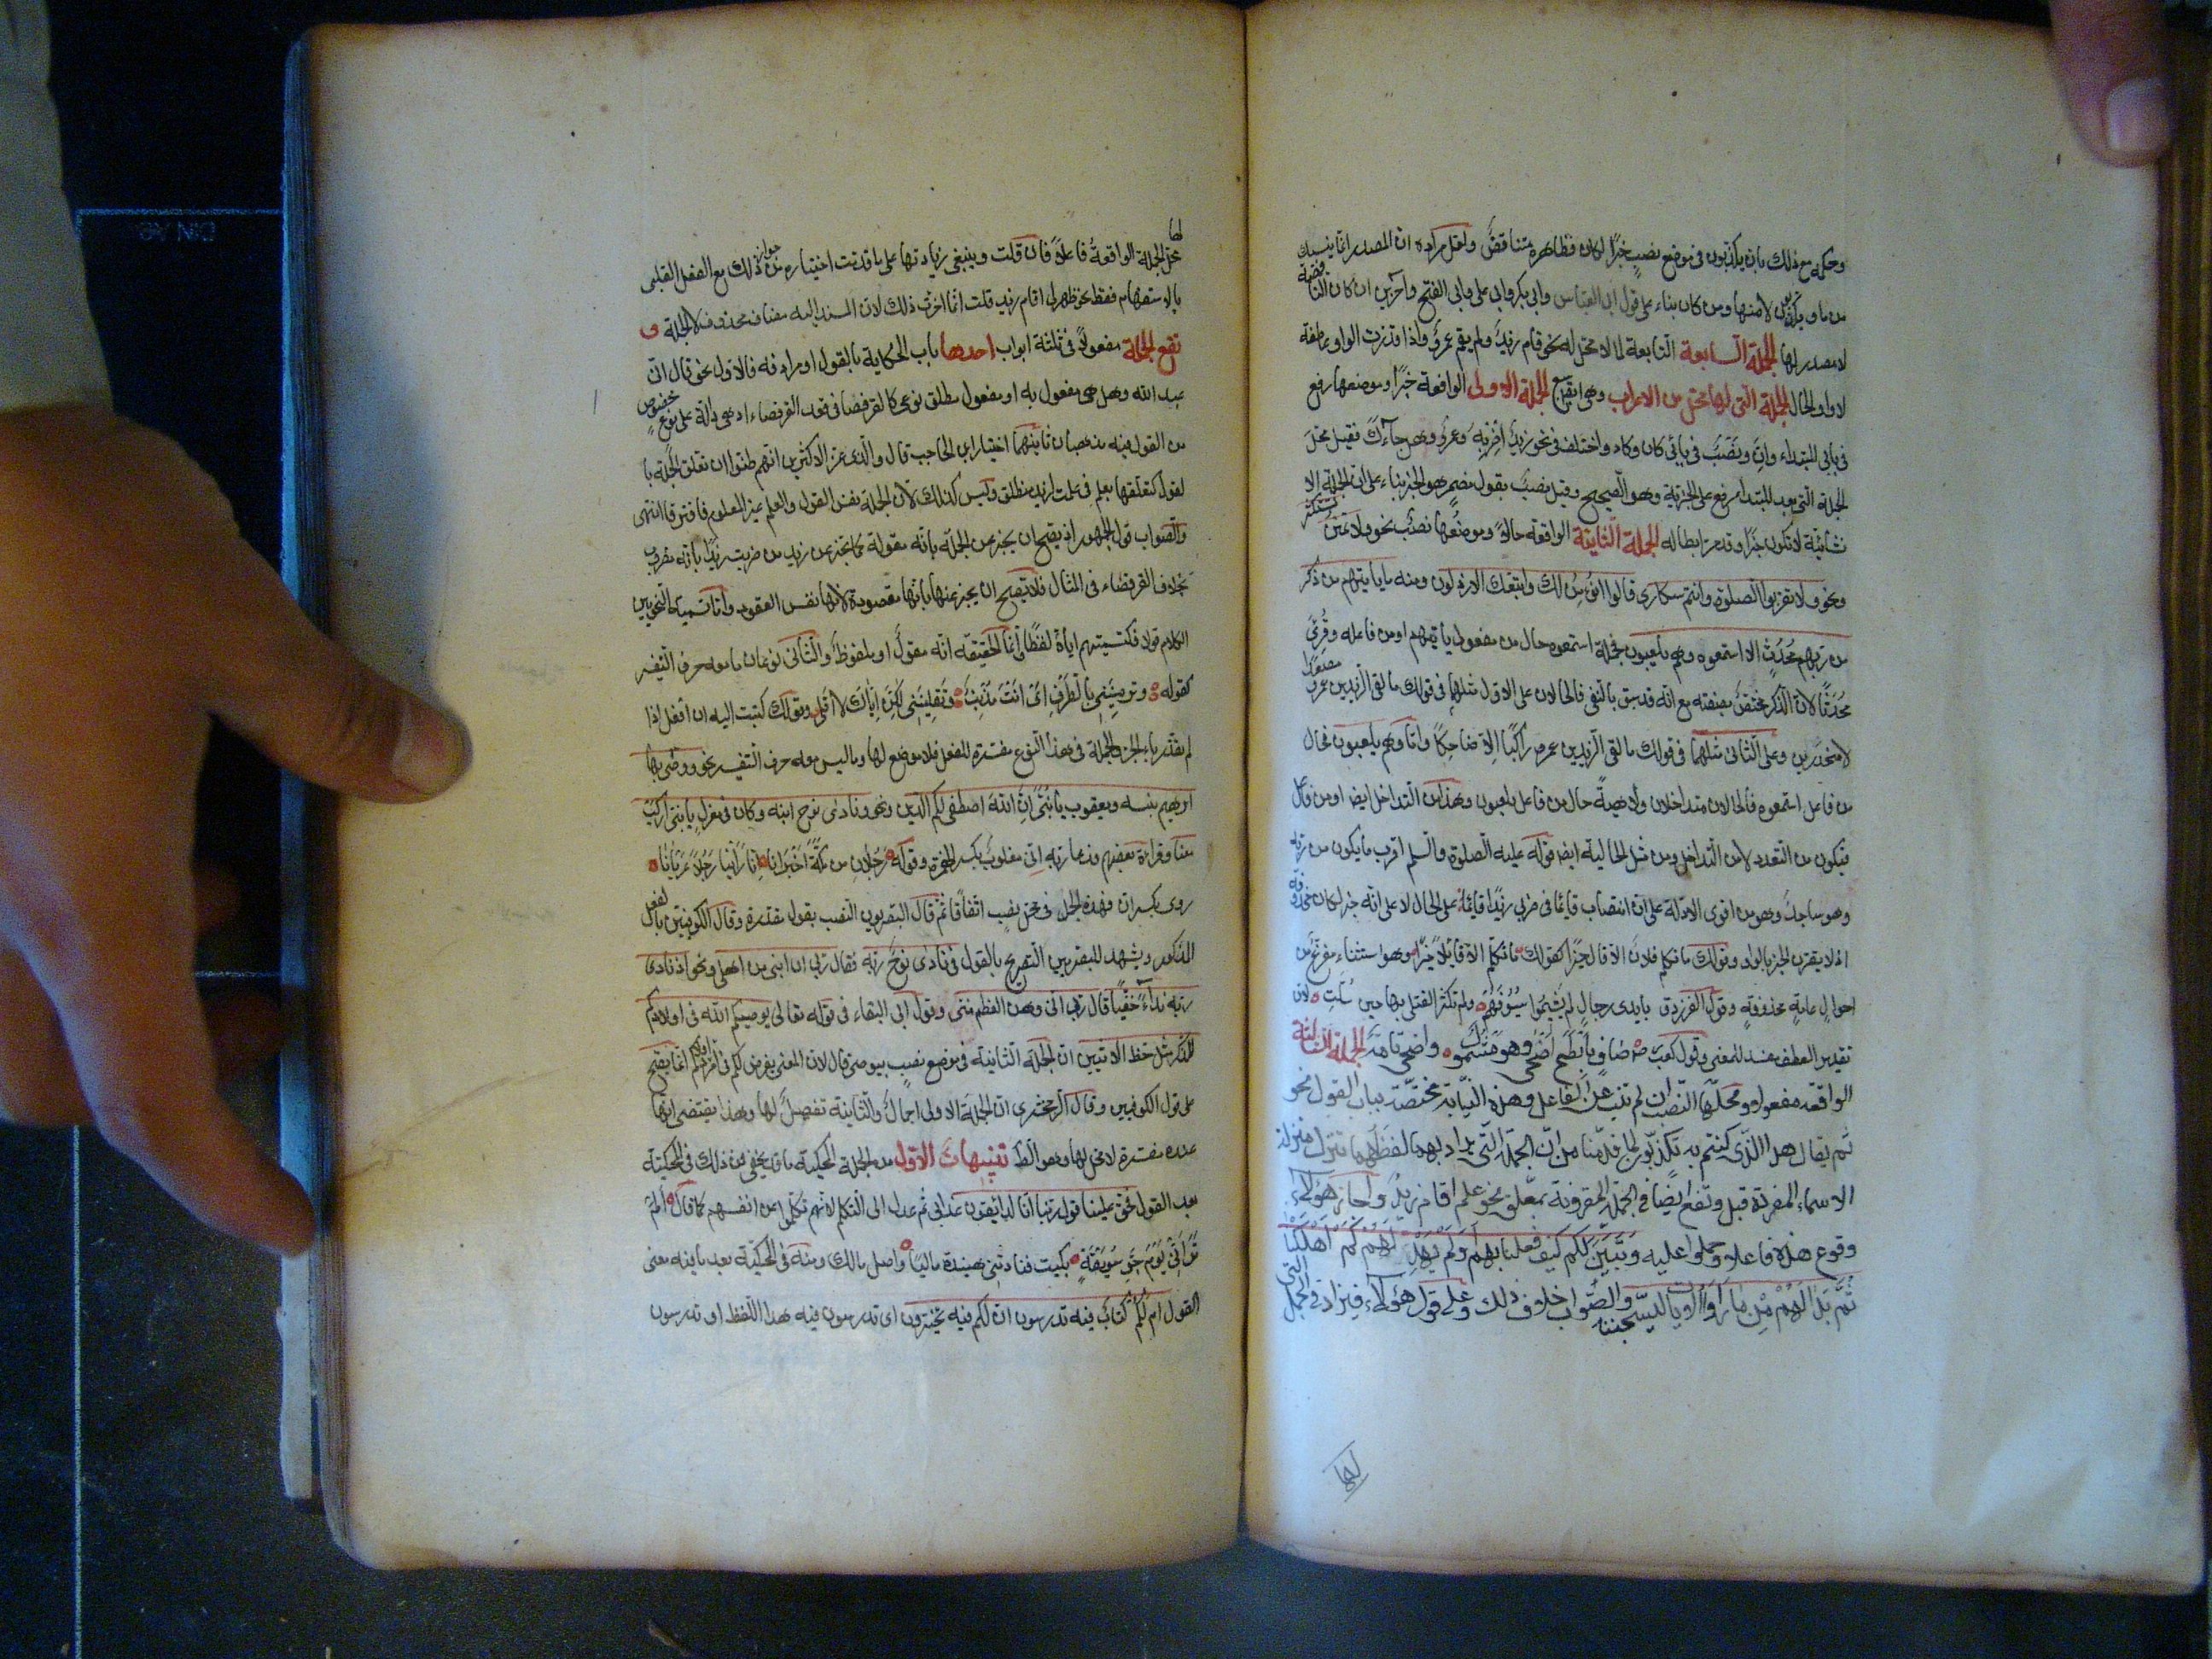 وحكمه مع ذلك بان يكذبون في موضع نصب خبرا لكان فظاهره متناقض ولعل مراده ان المصدر انما ينسبك
من ما ويكذبون لا منها ومن كان بناء على قول ابي العباس وابي بكر وابي علي وابي الفتح وآخرين ان كان الناقصة
لا مصدر لها الجملة السابعة التابعة لما لا محل له نحو قام زيد ولم يقم عمرو واذا قدرت الواو عاطفة
لا واو الحال الجمله التي لها محل من الاعراب وهي ايضا سبع الجملة الاولى الواقعة خبرا وموضعها رفع
في بابي المبتداء وان ونصب في بابي كان وكاد واختلف في نحو زيد اضربه وعمرو هل جاءك فقيل محل
الجملة التي بعد المبتدا رفع على الخبرية وهو الصحيح وقيل نصب بقول مضمر هو الخبر بناء على ان الجملة الا
نشائية لا تكون خبرا وقد مر ابطاله الجملة الثانية الواقعة حالا وموضعها نصب نحو ولا تمنن تستكثر
ونحو لا تقربوا الصلوة وانتم سكارى قالوا انؤمن لك واتبعك الارذلون ومنه ما يأتيهم من ذكر
من ربهم محدث الا استمعوه وهم يلعبون فجملة استمعوه حال من مفعول يأتيهم او من فاعله وقرئ
محدثا لان الذكر مختص بصفته مع انه قد سبق بالنفي فالحالان على الاول مثلهما في قولك ما لقي الزيدين عمرو مصعدا
الا منحدرين وعلى الثاني مثلهما في قولك ما لقي الزيدين عمرو راكبا الا ضاحكا واما وهم يلعبون فحال
من فاعل استمعوه فالحالان متداخلان ولاهية حال من فاعل يلعبون وهذا من التداخل ايضا او من فاعل
فيكون من التعدد لا من التداخل ومن مثل الحالية ايضا قوله عليه الصلوة والسلم اقرب ما يكون من ربه
وهو ساجد وهو من اقوى الادلة على ان انتصاب قايما في ضربي زيدا قايما على الحال لا على انه خبر لكان محذوفة
اذ لا يقترن الخبر بالواو وقولك ما تكلم فلان الا قال خيرا كقولك ما تكلم الا قايلا خيرا وهو استثناء مفرغ من
احوال عامة محذوفة وقول الفرزدق بايدي رجال لم يشيموا سيوفهم ولم تكثر القتلى بها حين سلت لان
تقدير العطف مفسد للمعنى وقول كعب صاف بابطح اضحى وهو مشمول واضحى تامة الجملة الثالثة
الواقعه مفعولا ومحلها النصب ان لم تنب عن الفاعل وهذه النيابة مختصة بباب القول نحو
ثم يقال هذا الذي كنتم به تكذبون لما قدمنا من ان الجملة التي يراد بها لفظها تنزل منزلة
الاسماء المفردة قيل وتقع ايضا في الجملة المقرونة بمعلق نحو علم اقام زيد واجاز هؤلاء
وقوع هذه فاعلا وحملوا عليه وتبين لكم كيف فعلنا بهم اولم يهد لهم كم اهلكنا
ثم بدا لهم من ما راوا الايات ليسجننه والصواب خلاف ذلك وعلى قول هؤلاء فيزاد في الجمل التي
لها
لها
محل الجملة الواقعة فاعلا فان قلت وينبغي زيادتها على ما قدمت اختياره من جواز ذلك مع الفعل القلبي
بالاستفهام فقط نحو ظهر لي اقام زيد قلت انما اخرت ذلك لان المسند اليه مضاف محذوف لا الجملة و
تقع الجملة مفعولا في ثلثة ابواب احدها باب الحكاية بالقول او مرادفه فالاول نحو قال اني
عبد الله وهل هي مفعول به او مفعول مطلق نوعي كالقرفصا في قعد القرفصاء اذ هي دالة على نوع خصوص
من القول فيه مذهبان ثانيهما اختيار ابن الحاجب قال والذي غر الاكثرين انهم ظنوا ان تعلق الجملة با
لقول كتعلقها بعلم في علمت لزيد منطلق وليس كذلك لان الجملة نفس القول والعلم غير المعلوم فافترقا انتهى
والصواب قول الجمهور اذ يصح ان يخبر عن الجملة بانه مقولة كما يخبر عن زيد من ضربت زيدا بانه مضروب
بخلاف القرفصاء في المثال فلا يصح ان يخبر عنها بانها مقعودة لانها نفس القعود واما تسمية النحويين
الكلام قولا فكتسميتهم اياه لفظا وانما الحقيقة انه مقول او ملفوظ والثاني نوعان ما معه حرف التفسير
كقوله وترمينني بالطرف اي انت مذنب وتقلينني لكن اياك لا اقلي وقولك كتبت اليه ان افعل اذا
لم تقدر باء الجر والجملة في هذا النوع مفسرة للفعل فلا موضع لها وما ليس معه حرف التفسير نحو ووصى بها
ابرهيم بنيه ويعقوب يا بني ان الله اصطفى لكم الدين ونحو ونادى نوح ابنه وكان في معزل يا بني اركب
معنا وقراءة بعضهم فدعا ربه اني مغلوب بكسر الهمزة وقوله رجلان من مكة اخبرانا انا رأينا رجلا عريانا
روى بكسر ان فهذه الجمل في محل نصب اتفاقا ثم قال البصريون النصب بقول مقدر وقال الكوفيين بالفعل
المذكور ويشهد للبصريين التصريح بالقول في ونادى نوح ربه فقال رب ان ابني من اهلي ونحو اذ نادى
ربه نداء خفيا قال رب اني وهن العظم مني وقول ابي البقاء في قوله تعالى يوصيكم الله في اولادكم
للذكر مثل حظ الانثيين ان الجملة الثانية في موضع نصب بيوصي قال لان المعنى يفرض لكم في اولادكم انما يصح
على قول الكوفيين وقال الزمخشري ان الجملة الاولى اجمال والثانية تفصيل لها وهذا يقتضي انها
عنده مفسرة لا محل لها وهو الظ تنبيهات الاول من الجملة المحكية ما قد يخفى من ذلك في المحكية
بعد القول فحق علينا قول ربنا انا لذائقون عذابي ثم عدل الى التكلم لانهم تكلموا عن انفسهم كما قال الم
تراني يوم جو سويقة بكيت فنادتني هنيدة ماليا واصل مالك ومنه في المحكية بعد ما فيه معنى
القول ام لكم كتاب فيه تدرسون ان لكم فيه تخيرون اي تدرسون فيه هذا اللفظ او تدرسون